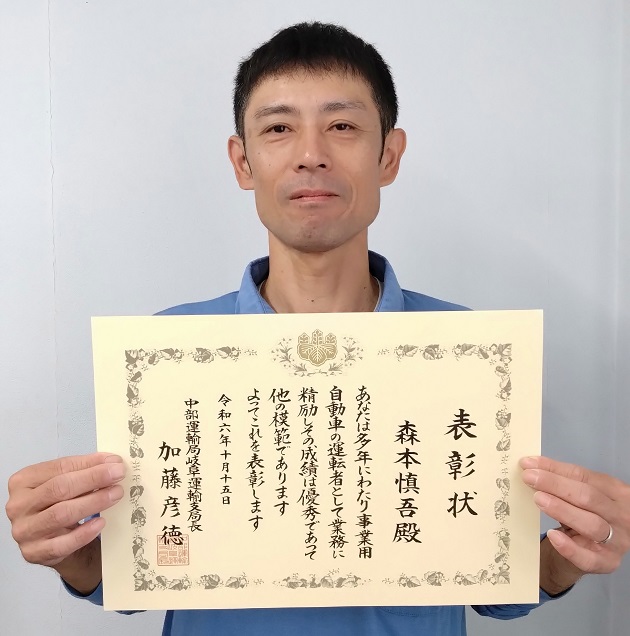 表彰状
森本慎吾殿
あなたは多年にわたり事業用
自動車の運転者として業務に
精励しその成績は優秀であって
他の模範であります
よってこれを表彰します
令和六年十月十五日
中部運輸局岐阜運輸支局長
加藤彦徳